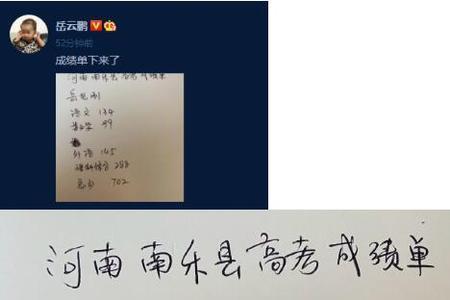 岳云鹏
52分钟前
成绩单下来了
河南 南乐县高考成绩单
岳龙刚
语文 134
数学 99
外语 145
综合 288
总分 702
河南 南乐县高考成绩单